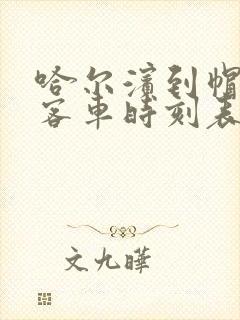 哈尔滨到帽
客车时刻表
文九晔